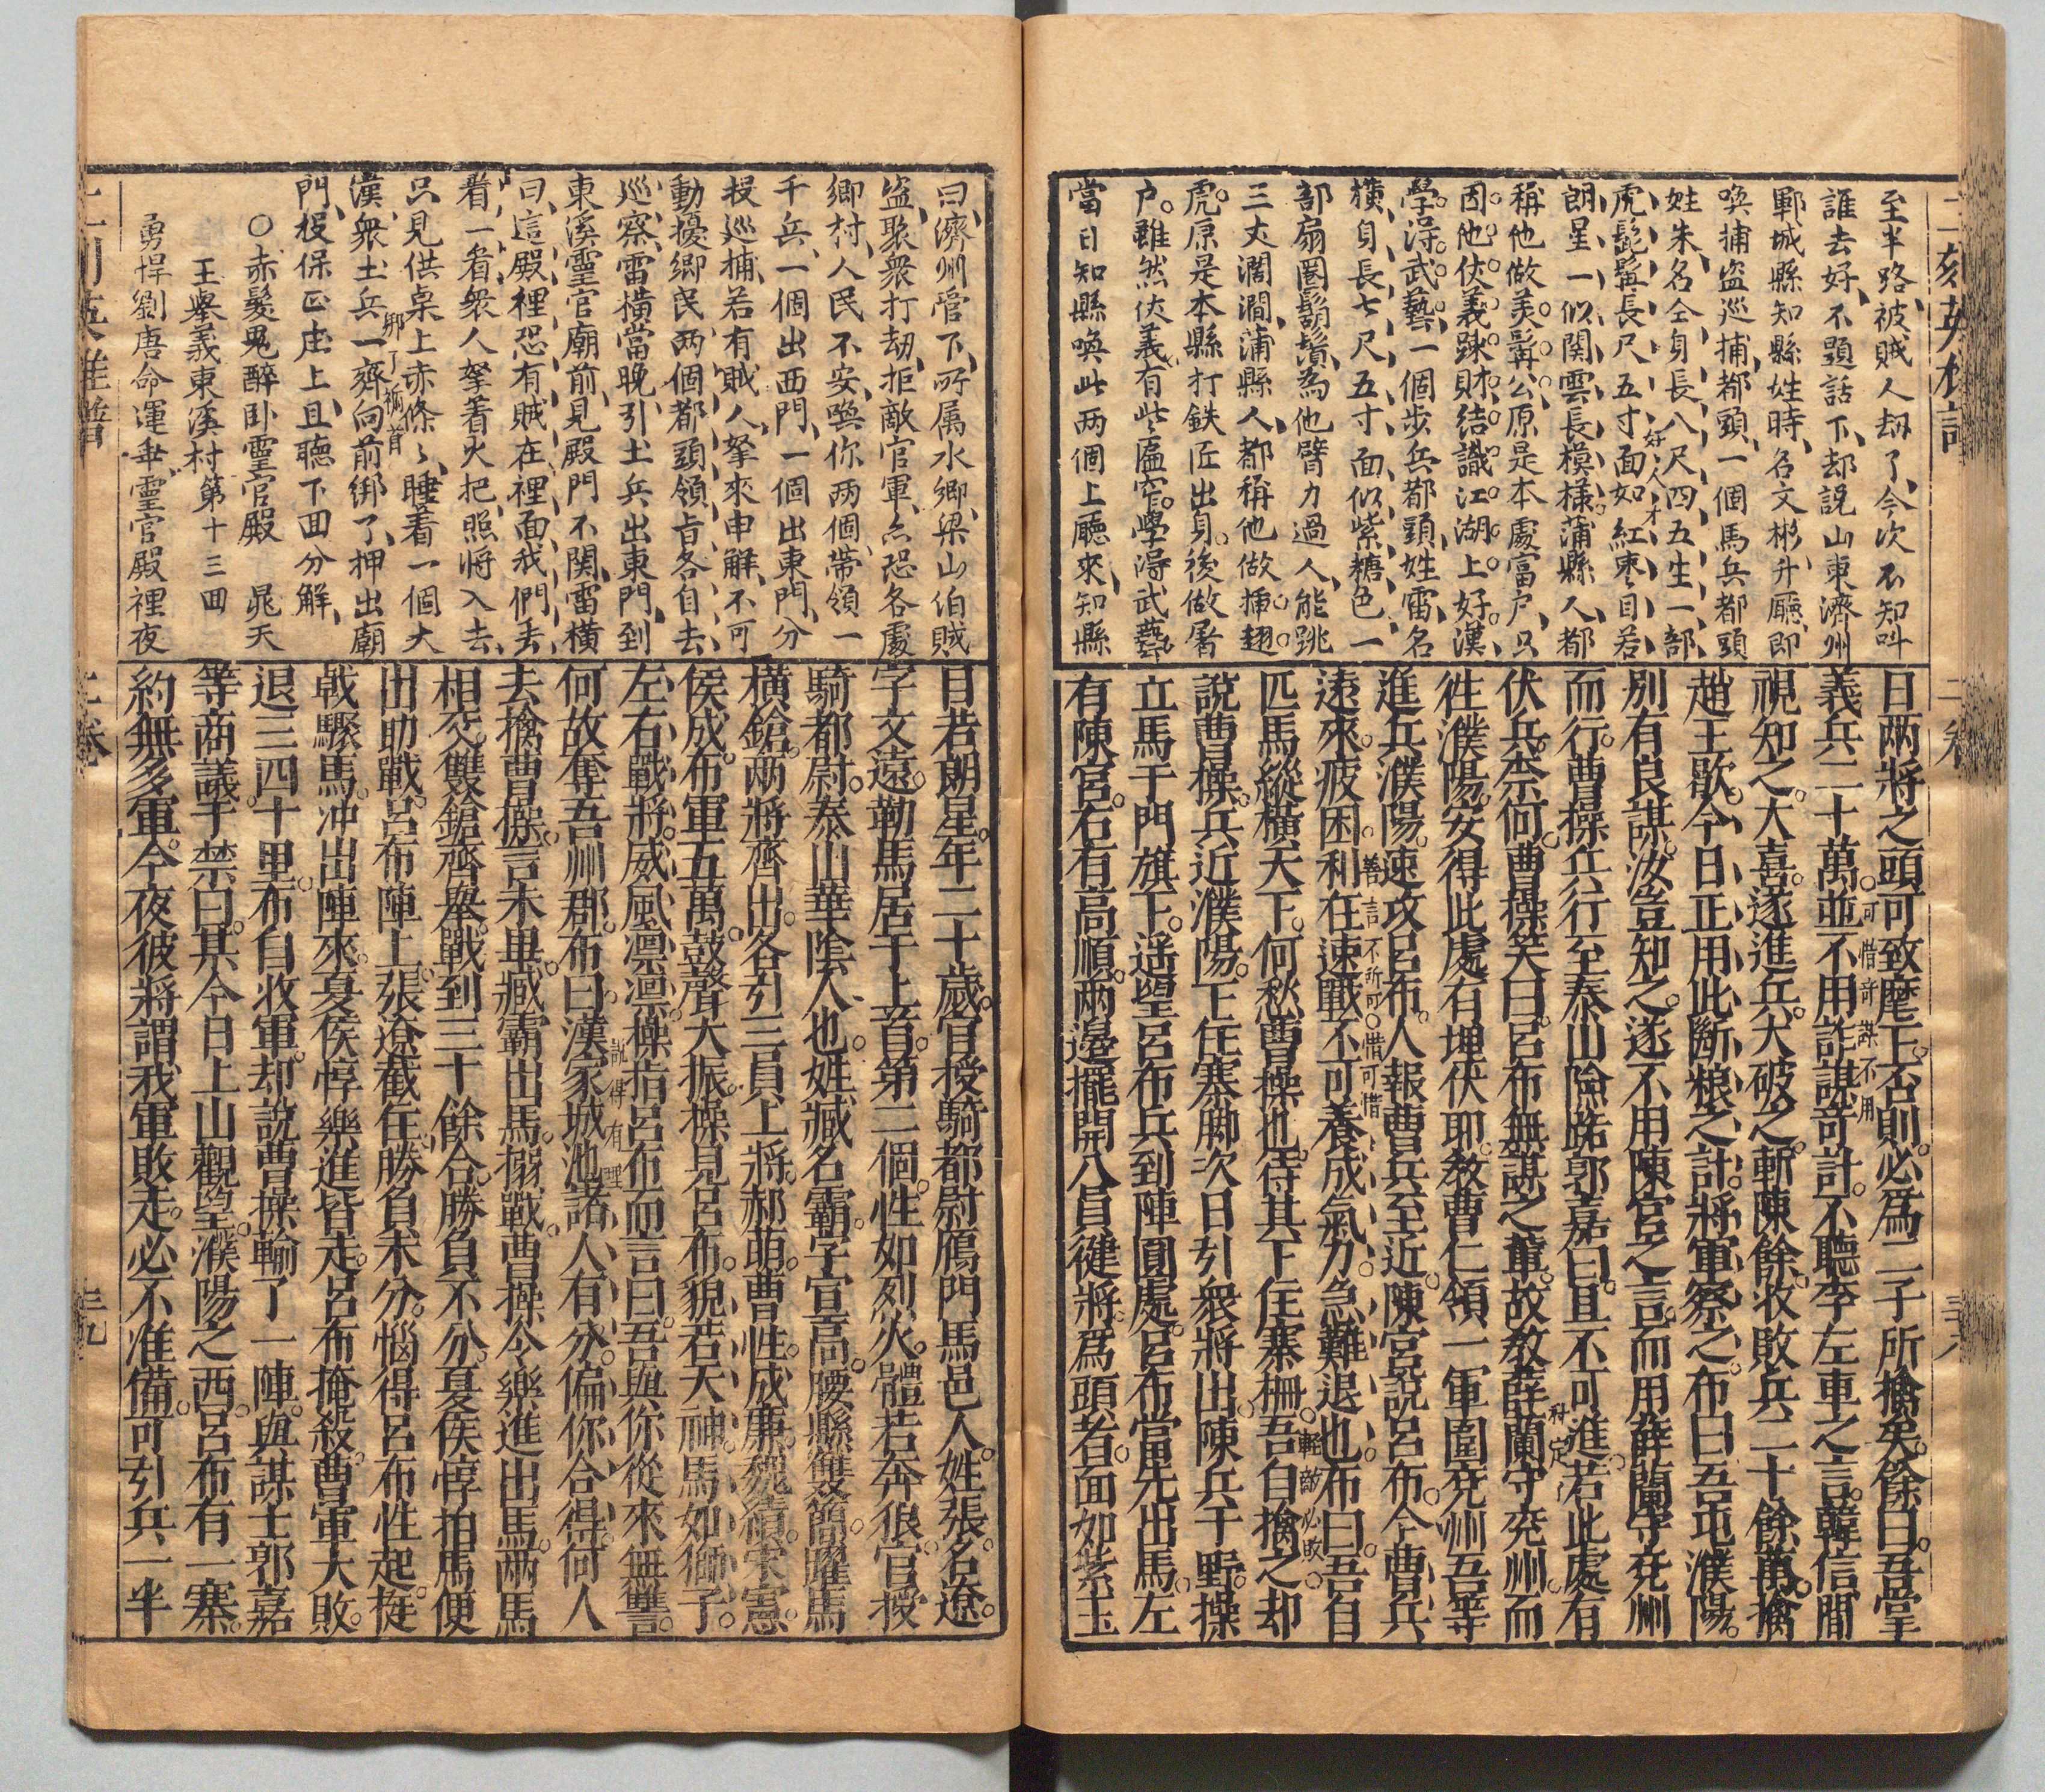 二刻英雄譜
二卷
三八
至半路被賊人刼了今次不知呌
誰去好不題話下却説山東濟州
鄆城縣知縣姓時名文彬升廳即
喚捕盗巡捕都頭一個馬兵都頭
姓朱名仝身長八尺四五生一部
虎髭髯長尺五寸面如紅棗目若
好人才
朗星一似関雲長模様蒲縣人都
稱他做美髯公原是本處富户只
因他仗義踈財結識江湖上好漢
學淂武藝一個步兵都頭姓雷名
横身長七尺五寸面似紫糖色一
部扇圏鬍鬚為他臂力過人能跳
三丈濶澗蒲縣人都稱他做揷翅
虎原是本縣打鉄匠出身後做屠
户雖然仗義有些匾窄學淂武藝
當日知縣喚此两個上廳來知縣
日两將之頭可致麾下否則必爲二子所擒矣餘曰吾堂
義兵二十萬並不用詭謀奇計不聽李左車之言韓信間
可惜奇謀不用
視知之大喜遂進兵大破之斬陳餘收敗兵二十餘萬擒
趙王歇今日正用此斷粮之計將軍察之布曰吾屯濮陽
别有良謀汝豈知之遂不用陳宮之言而用薛蘭守兖州
而行曹操兵行至泰山險路郭嘉曰且不可進若此處有
伏兵柰何曹操笑曰呂布無謀之輩故教薛蘭守兖州而
料定
徃濮陽安得此處有埋伏耶教曹仁領一軍圍兖州吾等
進兵濮陽速攻呂布人報曹兵至近陳宮說呂布今曹兵
遠來疲困利在速戰不可養成氣力急難退也布曰吾自
善言不听可惜可惜
匹馬縱横天下何愁曹操也待其下住寨柵吾自擒之却
輕敵必敗
說曹操兵近濮陽下住寨脚次日引衆將出陳兵于野操
立馬于門旗下遥望呂布兵到陣圓處呂布當先出馬左
有陳宮右有高順两邊擺開八員徤將爲頭者面如紫玉
曰濟州管下所属水鄉梁山伯賊
盗聚衆打刼拒敵官軍亦恐各處
鄉村人民不安喚你两個帶領一
千兵一個出西門一個出東門分
投巡捕若有賊人拏來申解不可
動擾鄉民两個都頭領㫖各自去
巡察雷横當晚引土兵出東門到
東溪靈官廟前見殿門不関雷横
曰這殿裡恐有賊在裡面我們去
看一看衆人拏着火把照將入去
只見供桌上赤條〻睡着一個大
漢衆土兵一齊向前綁了押出廟
那了禍首
門投保正庄上且聽下囬分解
○赤髮鬼醉卧靈官殿 晁天
王舉義東溪村 第十三囬
勇悍劉唐命運乖靈官殿裡夜
目若朗星年二十歲官授騎都尉鴈門馬邑人姓張名遼
字文遠勒馬居于上首第二個性如烈火體若奔狼官授
騎都尉泰山華陰人也姓臧名霸字宣高腰縣雙簡躍馬
横鎗两將齊出各引三員上將郝萌曹性成廉魏續宋憲
侯成布軍五萬鼓聲大振操見呂布貌若天神馬如獅子
左右戰將威風凛凛操指呂布而言曰吾與你從來無讐
何故奪吾州郡布曰漢家城池諸人有分偏你合得何人
説得有理
去擒曹操言未畢臧霸出馬搦戰曹操令樂進出馬两馬
相交雙鎗齊舉戰到三十餘合勝負不分夏侯惇拍馬便
出助戰呂布陣上張遼截住勝負未分惱得呂布性起挺
戟驟馬冲出陣來夏侯惇樂進皆走呂布掩殺曹軍大敗
退三四十里布自收軍却說曹操輸了一陣與謀士郭嘉
等商議于禁曰其今日上山觀望濮陽之西呂布有一寨
約無多軍今夜彼將謂我軍敗走必不准備可引兵一半
二刻英雄譜
二卷
三九